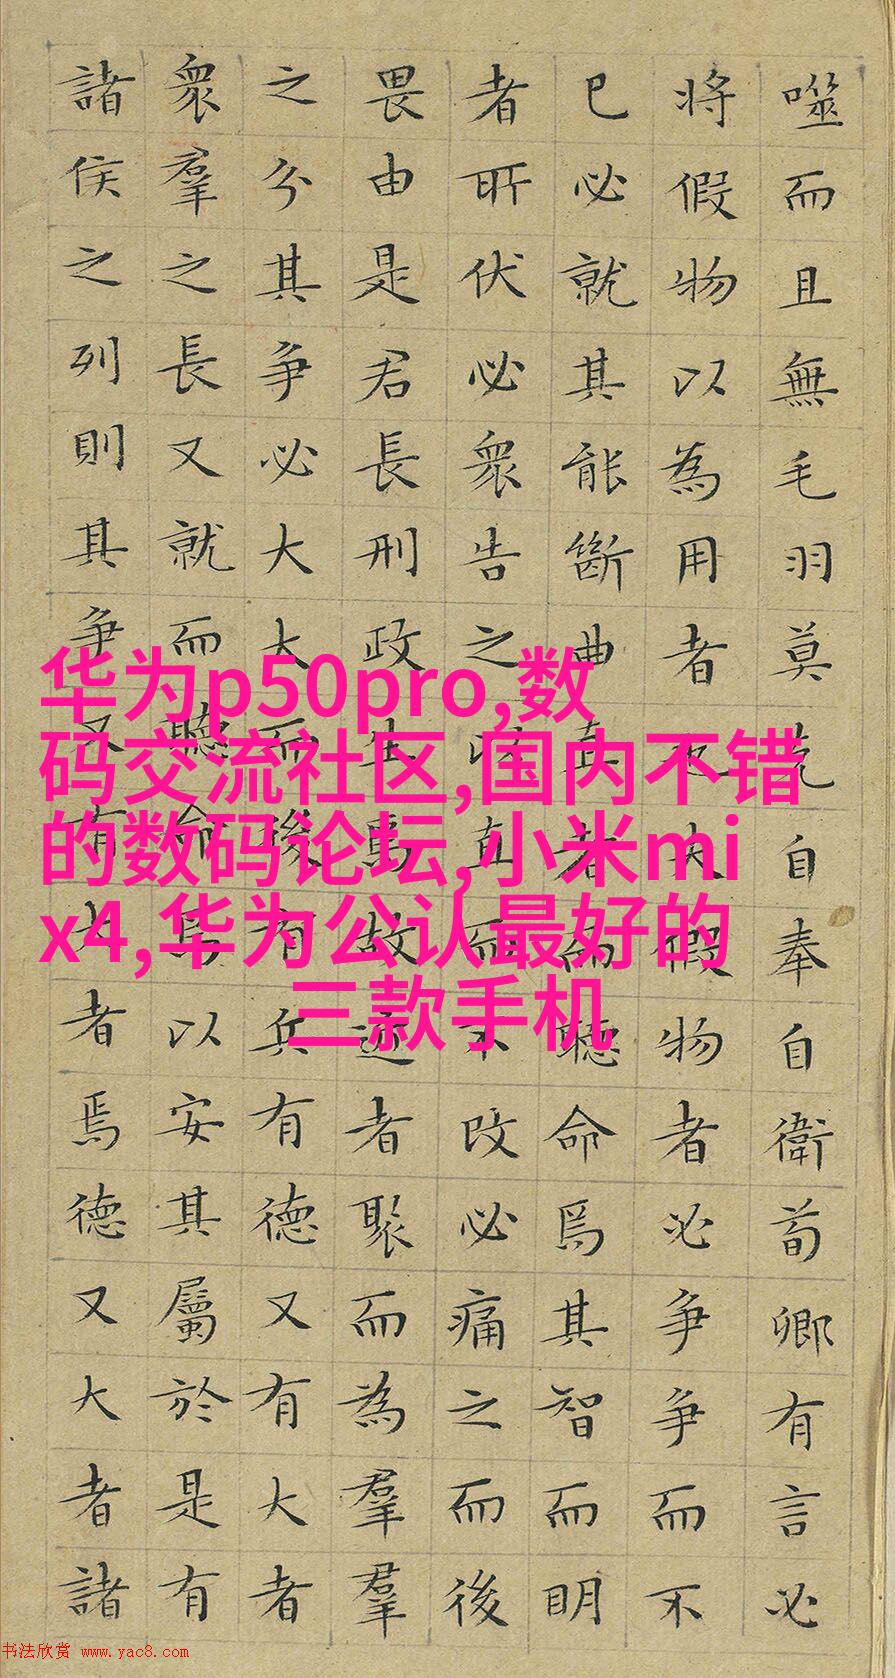 噬而且無毛羽莫克自奉自衛荀卿有言必
將假物以為用者也夫假物者必爭爭而不
已必就其能斷曲直者而聽命焉其智而明
者所伏必衆告之以直而不改必痛之而後
畏由是君長刑政生焉故近者聚而為羣羣
之分其爭必大大而後有兵有德又有大者
衆羣之長又就而聽命焉以安其屬於是有
諸侯之列則其爭又有大者焉德又大者諸
华为p50pro,数
码交流社区,国内不错
的数码论坛,小米mi
x4,华为公认最好的
三款手机
书法欣赏 www.yac8.com